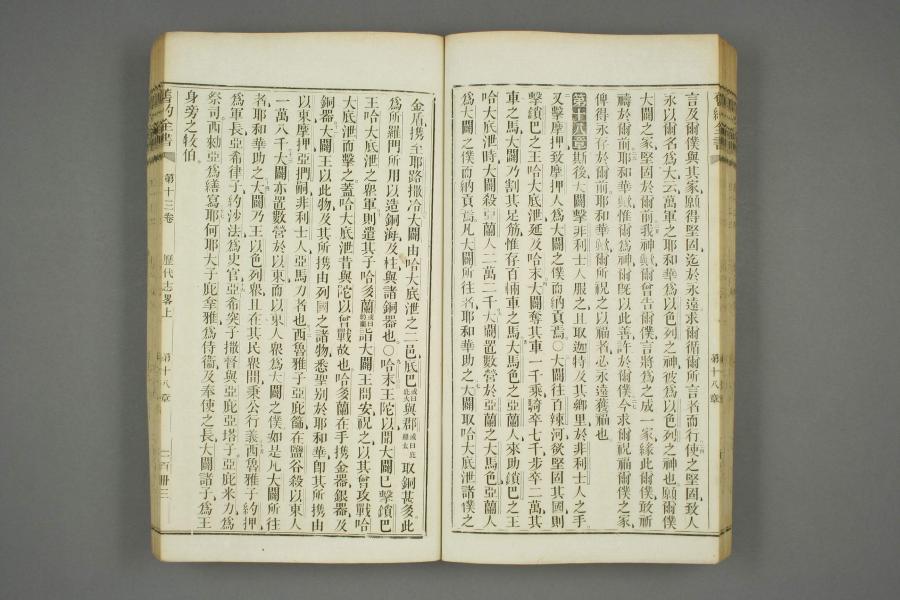 言及爾僕與其家願得堅固迄於永遠求爾循爾所言者而行使之堅固致人
永以爾名為大云萬軍之耶和華為以色列之神彼為以色列之神也願爾僕
大闢之家堅固於爾前我神歟爾曾告爾僕言將為之成一家緣此爾僕敢祈
禱於爾前耶和華歟惟爾為神爾既以此善許於爾僕今求爾祝福爾僕之家
俾得永存於爾前耶和華歟爾所祝之以福者必永遠獲福也
第十八章斯後大闢擊非利士人服之且取迦特及其鄉里於非利士人之手
又擊摩押致摩押人為大闢之僕而納貢焉○大闢往百辣河欲堅固其國則
擊鎖巴之王哈大底泄延及哈末大闢奪其車一千乘騎卒七千步卒二萬其
車之馬大闢乃割其足筋惟存百輛車之馬大馬色之亞蘭人來助鎖巴之王
哈大底泄時大闢殺亞蘭人二萬二千大闢置數營於亞蘭之大馬色亞蘭人
為大闢之僕而納貢焉凡大闢所往者耶和華助之大闢取哈大底泄諸僕之
金盾携至耶路撒冷大闢由哈大底泄之二邑底巴或曰庇大與郡或曰庇羅太取銅甚多此
為所羅門所用以造銅海及柱與諸銅器也○哈末王陀以聞大闢已擊鎖巴
王哈大底泄之眾軍則遣其子哈多蘭或曰約蘭詣大闢王問安祝之以其曾攻戰哈
大底泄而擊之蓋哈大底泄昔與陀以曾戰故也哈多蘭在手携金器銀器及
銅器大闢王以此物及其所携由列國之諸物悉聖别於耶和華即其所携由
以東摩押亞捫嗣非利士人亞馬力者也西魯雅子亞庇篩在鹽谷殺以東人
一萬八千大闢亦置數營於以東而以東人眾為大闢之僕如是凡大闢所往
者耶和華助之大闢乃王以色列眾且在其民眾間秉公行義西魯雅子約押
為軍長亞希律子約沙法為史官亞希突子撒督與亞庇亞塔子亞庇米力為
祭司西勅亞為繕寫耶何耶大子庇拿雅為侍衞及奉使之長大闢諸子為王
身旁之牧伯
舊約全書
第十三卷
歷代志畧上
第十八章
二百卌三